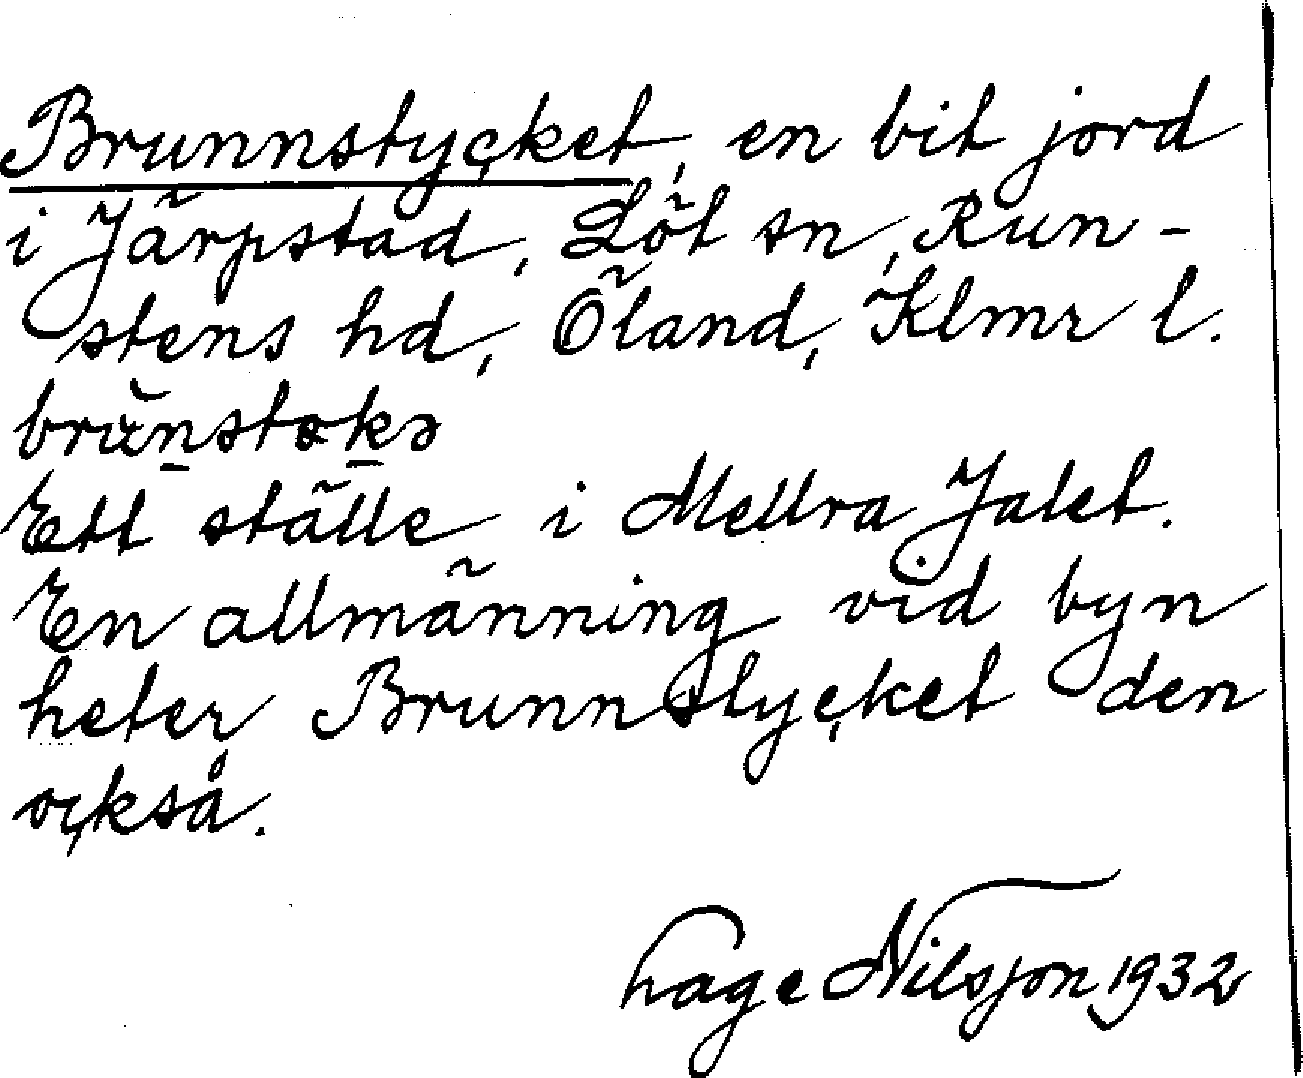 Brunnstycket, en bit jord
i Järpstad, Löt sn, Run-
stens hd, Öland, Klmr l.
Ett ställe i Mellra Jalet.
En allmänning vid byn
heter Brunnstycket den
också.
Lage Nilsson 1932